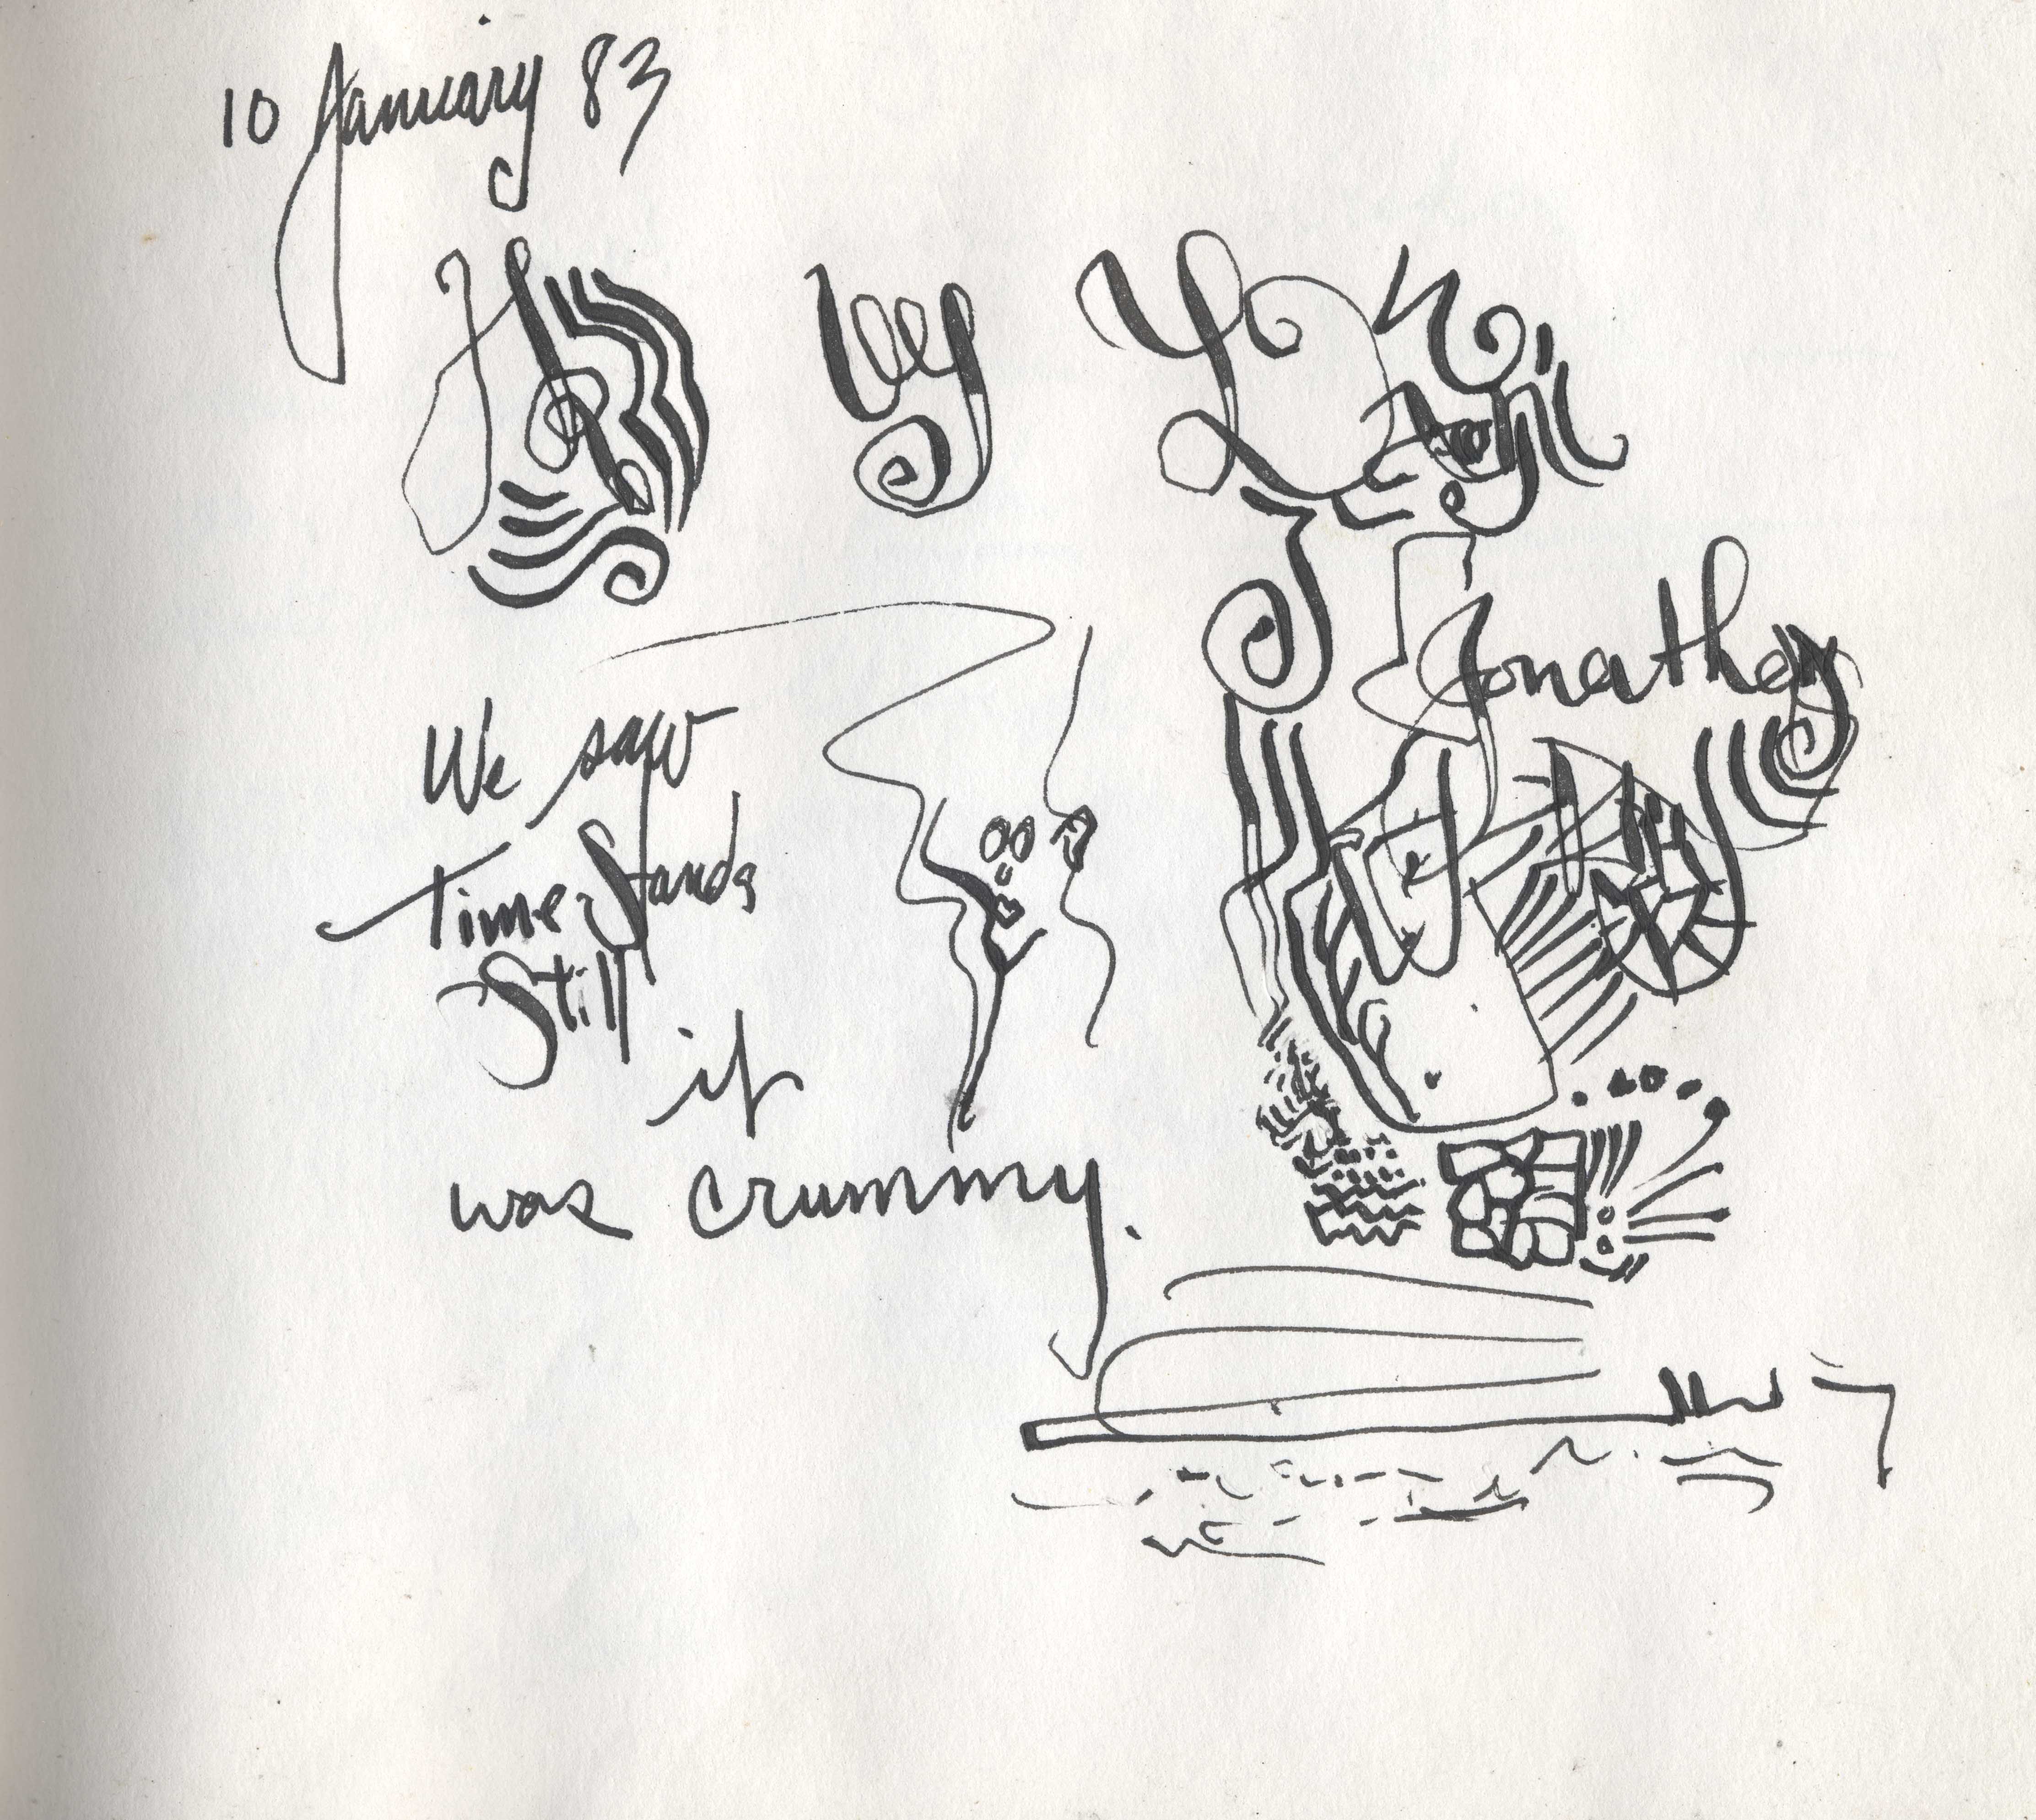 10 January 83
by
Jonathan
We saw
Time Stands
Still
it
was crummy.